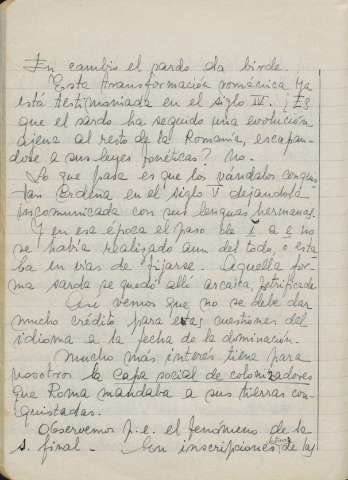 En cambio el sardo da birde.
Esta transformación románica ya
está testimoniada en el siglo IV. ¿Es
que el sardo ha seguido una evolución
ajena al resto de la Romania, escapan-
dose a sus leyes fonéticas? No.
Lo que pasa es que los vándalos conquis
tan Cerdeña en el siglo V dejandola
incomunicada con sus lenguas hermanas.
Y en esa época el paso de ĭ a e no
se había realizado aun del todo, o esta
ba en vías de fijarse. Aquella for-
ma sarda se quedó allí arcaica, petrificada
Así vemos que no se debe dar
mucho crédito para estas cuestiones del
idioma a la fecha de la dominación.
Mucho más interés tiene para
nosotros la capa social de colonizadores
que Roma mandaba a sus tierras con-
quistadas.
Observemos p. e. el fenómeno de la
s. final. - En inscripciones de las